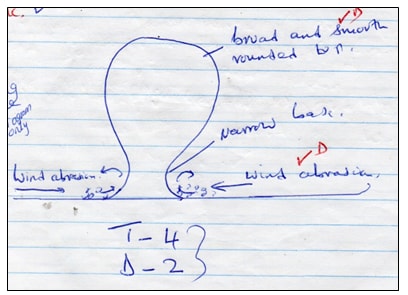 D
broad and smooth
rounded top.
g
lagoon
only
Narrow base.
D
wind abrasion.
wind abrasion.
T - 4
D - 2